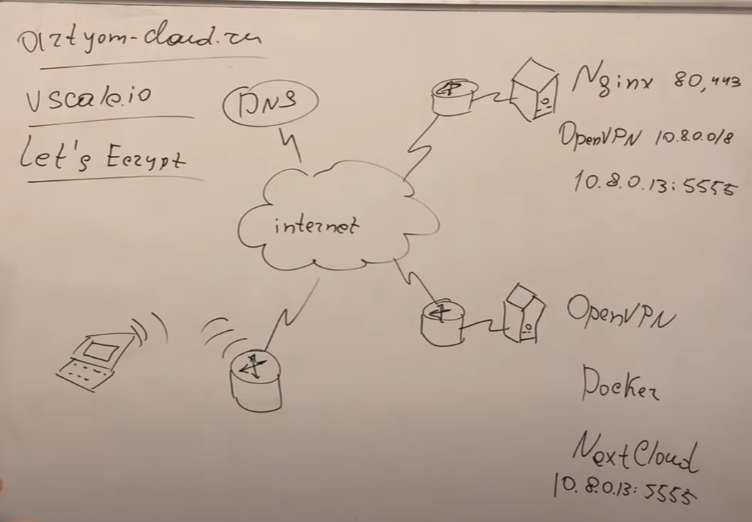 artyom-cloud.ru
vscale.io
Let's Ecrypt
DNS
internet
Nginx 80,443
OpenVPN 10.8.0.0/8
10.8.0.13:5555
OpenVPN
Docker
NextCloud
10.8.0.13:5555